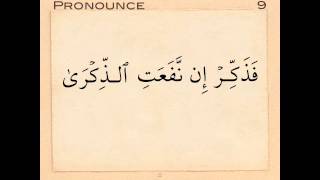 PRONOUNCE 9
فَذَكِّرۡ إِن نَّفَعَتِ ٱلذِّكۡرَىٰ